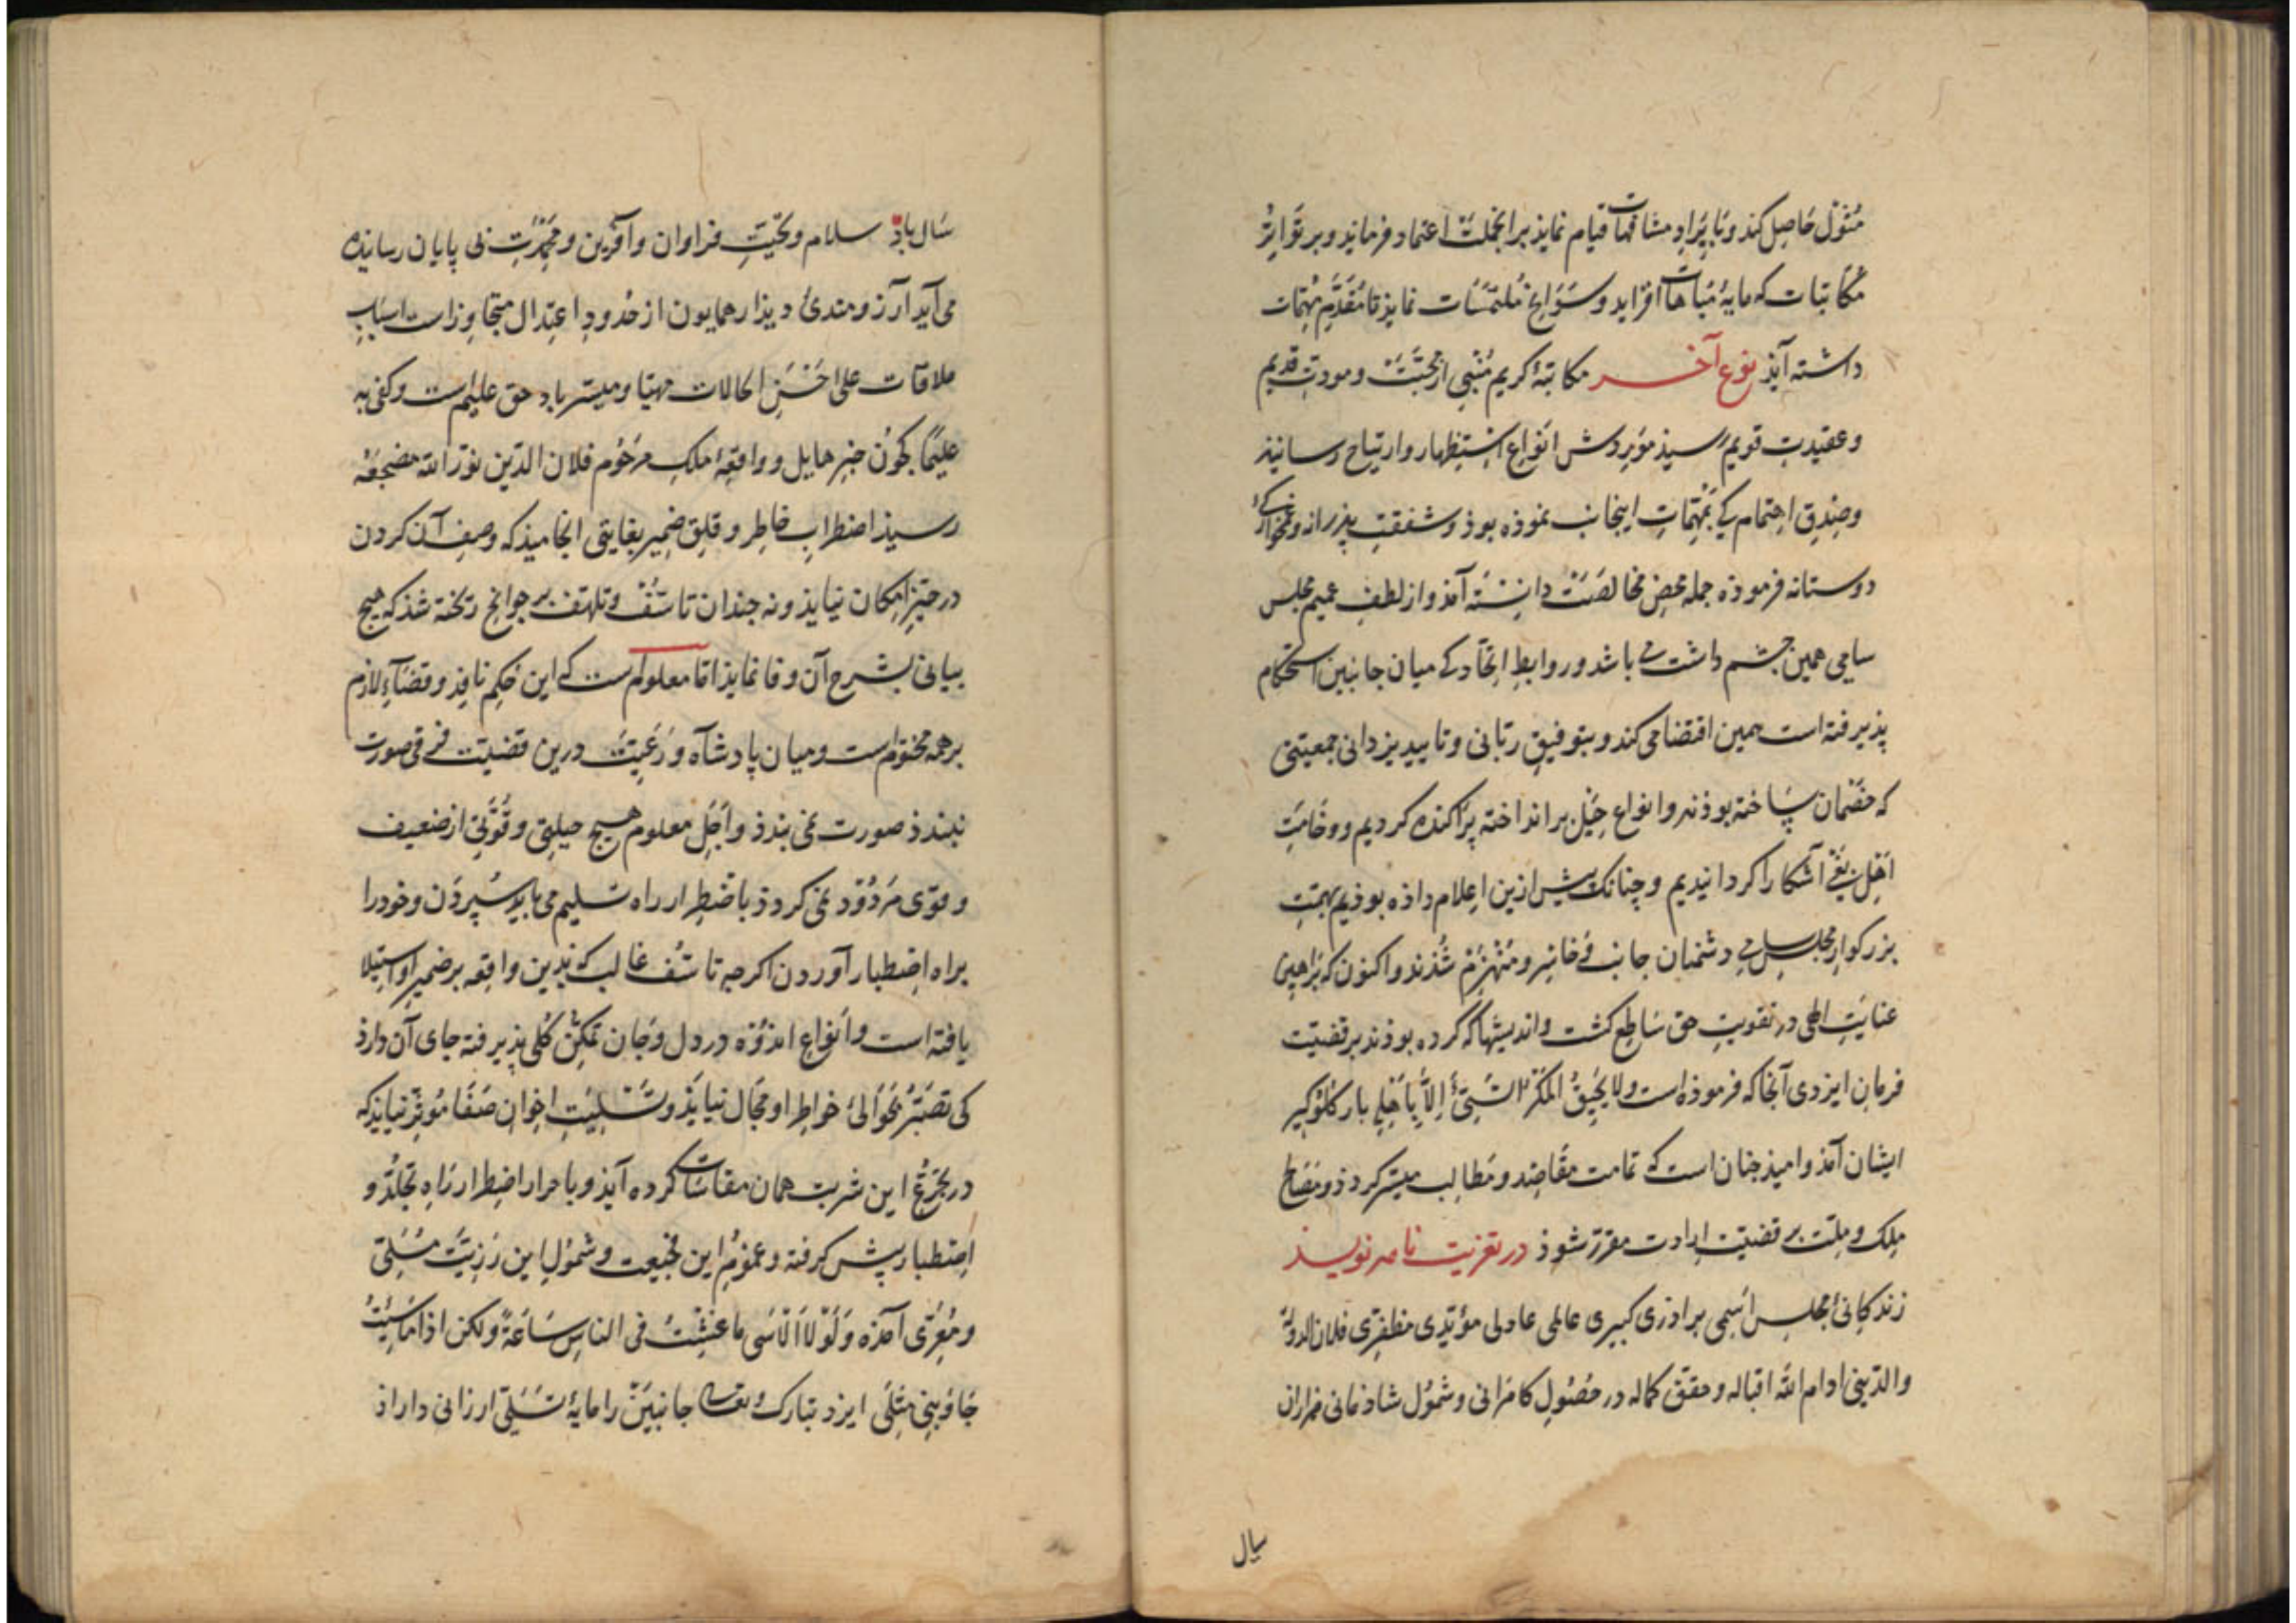 مُثُول حَاصِل کند وبَایِرَادِ مشافهات قیام نماید بر آنجملت اعتماد فرماید و بر تَوَاتِرُ
مُکاتبات که مایۀ مُباهات افزاید و سَوَانِحْ مُلتَمَسَات نماید تا مُقَدَّم مُهِمّات
داشته آید نوع آخر مکاتبۀ کریم مُنْبِی از محبَّتْ و مودتِ قدیم
و عقیدتِ قویم رسید مورِد ش انَواعِ اِسْتِظهار و ارتیاح رسانید
و صِدقِ اهتمام کی بَمُهِمّاتِ اینجانب نموذه بوذ و شفقتِ پذرانه و غمخوارکی
دوستانه فرموذه جمله محضِ مُخالصَتْ دانِسْتَه آمذ و از لطفِ عمیم مجلس
سامی همین چشم داشت می باشد و روابطِ اتّحاد کی میان جانبین استحکام
پذیرفته است همین اقتضا می کند و بتوفیقِ ربّانی و تایید یزدانی جمعیّتی
که خَصْمان سَاخته بوذند و انواع حِیَل بر انداخته پَراکنده کردیم و وخَامتِ
اَهْلِ بَغْی آشکارا کردانیدیم و چنانک پیش ازین اِعلام داذه بوذیم بهمّتِ
بزرکوار مجلسِ سامی دشمنان جانب فی خاسِر و مُنْهَزِمْ شُذند و اکنون که بَراهینِ
عنایَتِ الهی در تقویتِ حق سَاطِع کشت و اندیشها که کرده بوذند بر قضیّت
فرمان ایزدی آنجا که فرموذه است ولا یَحِیقُ المَکْرُ السَّیِّئُ اِلَّا بِاَهْلِهِ بار کلوکیر
ایشان آمذ و امیذ چنان است که تمامت مقَاصِد و مَطالِب میسّر کردذ و مَصَالح
مِلک و مِلّت بر قضیّت اِرادت مقرّر شوذ در تعزیت نامه نویسذ
زندکانیِ مجلس اَسْمی برادری کبیری عالمی عادلی مؤیّدی مظفری فلان الدولة
والدّینی ادام الله اقباله و حقق کماله در حُصُولِ کامرانی و شُمُول شاذمانی هزاران
سال
سَال باذ سلام و تحیّتِ فراوان و آفرین و مَحْمِدَتِ بی پایان رسانیذه
می آید آرزومندیِ دیذار همایون از حُدودِ اعتِدال متجاوِز است اسبابِ
ملاقات علی اَحْسَنِ الحالات مهیّا و میسّر باد حق علیم است وکفی به
علیمًا کچُون خبرِ هایل و واقعۀ ملکِ مرحُوم فلان الدّین نوّر الله مضجعَهُ
رسیذ اضطرابِ خاطِر و قلِق ضِمیر بغایتی انجامیذ که وصفِ آن کردن
در حَیّزِ اِمکان نیایذ و نه چندان تاسُّفْ و تلهّف بر جوانح ریخته شذ که هیچ
بیانی بشرح آن وفا نمایذ امّا معلوم است کی این حُکمِ نافِذ و قضَآءِ لازم
بر همه محتوم است و میان پادشاه و رَعِیّتْ درین قضیّت فرقی صورت
نبندذ صورت نمی بندذ و اَجَلِ معلوم هیچ حیلتی و قُوّتی از ضعیف
و قوّی مَرْدُوْد نمی کردذ باضْطِرار راه تسلیم می باید سُپردَن و خود را
براه اِصْطِبار آوردن اکرچه تاسُّف غالب که بدین واقِعه بر ضمیر او اِستِیلا
یافته است و اَنواعِ اندُوْه در دل و جان تمَکّن کُلی پذیرفته جای آن دارذ
کی تصَبُّرْ بحَوالیِ خواطِر او مجَال نیابَذ و تسْلِیَتِ اِخوان صَفَا مُوثّر نیایذ که
در تجَرُّعِ این شربت همان مقاسَات کرده آیذ و باحرار اضطِرار رَاه تجلّد و
اِصْطبار پیش کرفته و عمُومِ این فجیعت و شُمُولِ این رَزیَّتْ مُسَلّی
و مُعِزّی آمذه وَلَوْلَا الْاُسَی ما عِشْتُ فی الناسِ سَاعَةً ولکن اذا ما شِئْتُ
جَاوَبَنِی مِثْلِی ایزد تبارک و تعالی جانبَینْ را مایۀ تسَلّی ارزانی داراذ